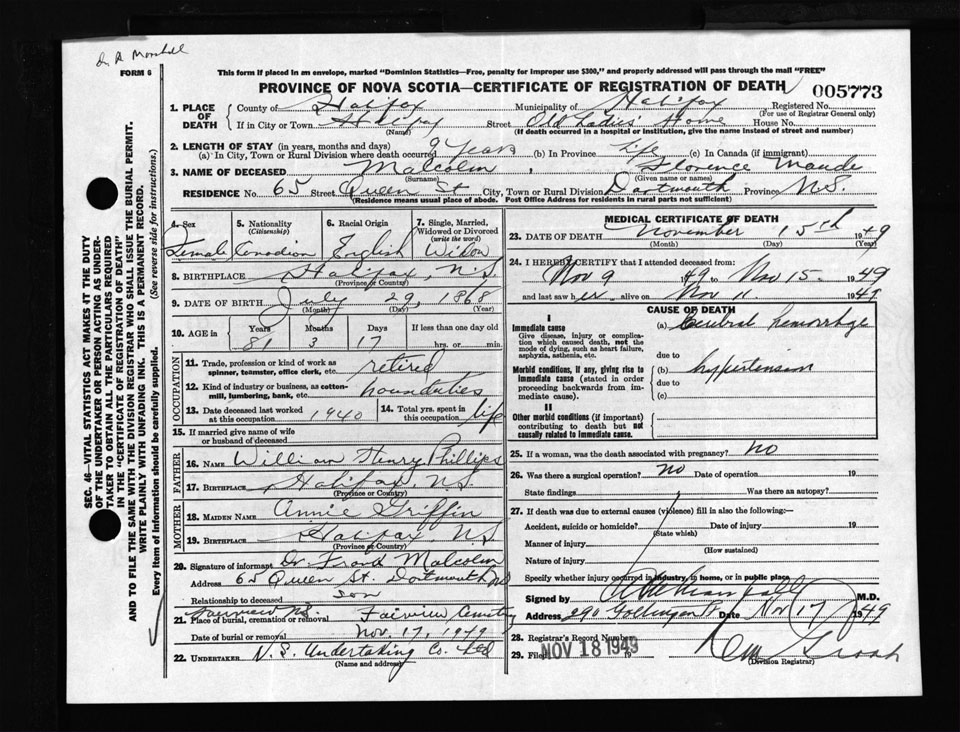 Dr A Marshall
FORM 6
This form if placed in an envelope, marked "Dominion Statistics—Free, penalty for improper use $300," and properly addressed will pass through the mail "FREE"
PROVINCE OF NOVA SCOTIA—CERTIFICATE OF REGISTRATION OF DEATH 005773
1. PLACE OF DEATH County of Halifax Municipality of Halifax Registered No.
(For use of Registrar General only)
If in City or Town Halifax Street Old Ladies' Home House No.
(Name) (If death occurred in a hospital or institution, give the name instead of street and number)
2. LENGTH OF STAY (in years, months and days)
(a) In City, Town or Rural Division where death occurred 9 years (b) In Province life (c) In Canada (if immigrant)
3. NAME OF DECEASED Malcolm , Florence Maude
(Surname) (Given name or names)
RESIDENCE No. 65 Street Queen St City, Town or Rural Division Dartmouth Province N.S.
(Residence means usual place of abode. Post Office Address for residents in rural parts not sufficient)
4. Sex 5. Nationality (Citizenship) 6. Racial Origin 7. Single, Married, Widowed or Divorced (write the word)
Female Canadian English Widow
8. BIRTHPLACE Halifax, N.S.
(Province or Country)
9. DATE OF BIRTH July 29, 1868
(Month) (Day) (Year)
10. AGE in Years Months Days If less than one day old
81 3 17 hrs. or min.
OCCUPATION
11. Trade, profession or kind of work as spinner, teamster, office clerk, etc. retired
12. Kind of industry or business, as cotton-mill, lumbering, bank, etc. houseduties
13. Date deceased last worked at this occupation 1940 14. Total yrs. spent in this occupation life
15. If married give name of wife or husband of deceased
FATHER
16. NAME William Henry Phillips
17. BIRTHPLACE Halifax, N.S.
(Province or Country)
MOTHER
18. MAIDEN NAME Annie Griffin
19. BIRTHPLACE Halifax, N.S.
(Province or Country)
20. Signature of informant Dr. Frank Malcolm
Address 65 Queen St. Dartmouth NS
Relationship to deceased son
Fairview NS.
21. Place of burial, cremation or removal Fairview Cemetery
Date of burial or removal Nov. 17, 1949
22. UNDERTAKER N.S. Undertaking Co. Ltd
(Name and address)
MEDICAL CERTIFICATE OF DEATH
23. DATE OF DEATH November 15th 1949
(Month) (Day) (Year)
24. I HEREBY CERTIFY that I attended deceased from:
Nov 9 1949 to Nov 15. 1949
and last saw her alive on Nov 11 1949
CAUSE OF DEATH
I
Immediate cause
Give disease, injury or complication which caused death, not the mode of dying, such as heart failure, asphyxia, asthenia, etc.
(a) Cerebral hemorrhage
due to
Morbid conditions, if any, giving rise to immediate cause (stated in order proceeding backwards from immediate cause).
(b) hypertension
due to
(c)
II
Other morbid conditions (if important) contributing to death but not causally related to immediate cause.
25. If a woman, was the death associated with pregnancy? no
26. Was there a surgical operation? no Date of operation 19
State findings Was there an autopsy?
27. If death was due to external causes (violence) fill in also the following:—
Accident, suicide or homicide? Date of injury 19
(State which)
Manner of injury
(How sustained)
Nature of injury
Specify whether injury occurred in industry, in home, or in public place
Signed by A M Marshall M.D.
Address 290 Gottingen St Date Nov 17 1949
28. Registrar's Record Number
29. Filed NOV 18 1949 19
(Division Registrar)
SEC. 46—VITAL STATISTICS ACT MAKES IT THE DUTY OF THE UNDERTAKER OR PERSON ACTING AS UNDERTAKER TO OBTAIN ALL THE PARTICULARS REQUIRED IN THE "CERTIFICATE OF REGISTRATION OF DEATH" AND TO FILE THE SAME WITH THE DIVISION REGISTRAR WHO SHALL ISSUE THE BURIAL PERMIT.
WRITE PLAINLY WITH UNFADING INK. THIS IS A PERMANENT RECORD.
Every Item of Information should be carefully supplied. (See reverse side for instructions.)